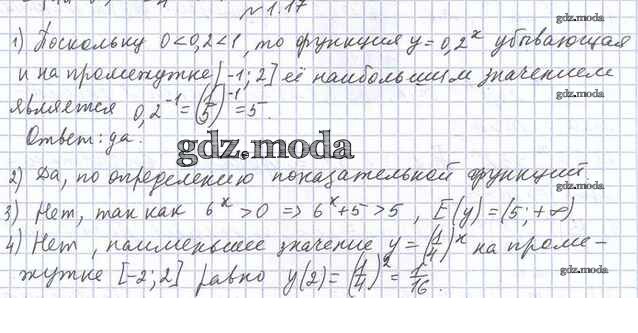 №1.17
gdz.moda
1) Поскольку 0<0,2<1, то функция y=0,2^x убывающая
и на промежутке [-1; 2] её наибольшим значением
gdz.moda
является 0,2^-1=(1/5)^-1=5.
Ответ: да.
gdz.moda
2) Да, по определению показательной функций.
gdz.moda
3) Нет, так как 6^x>0 => 6^x+5>5, E(y)=(5;+∞)
gdz.moda
4) Нет, наименьшее значение y=(1/4)^x на проме-
жутке [-2; 2] равно y(2)=(1/4)^2=1/16.
gdz.moda